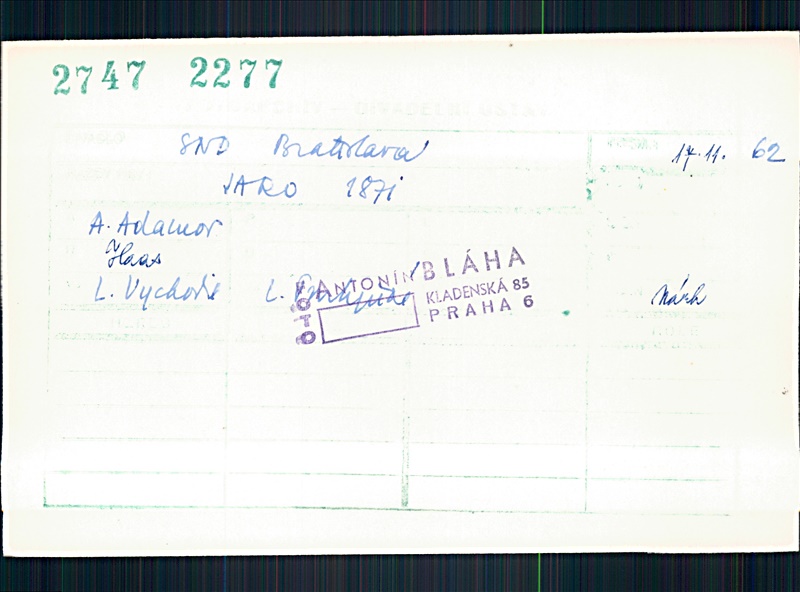 2747 2277
SND Bratislava 17.11. 62
JARO 1871
A. Adamov
Haas
L. Vychodil L.
FOTO ANTONÍN BLÁHA
KLADENSKÁ 85
PRAHA 6